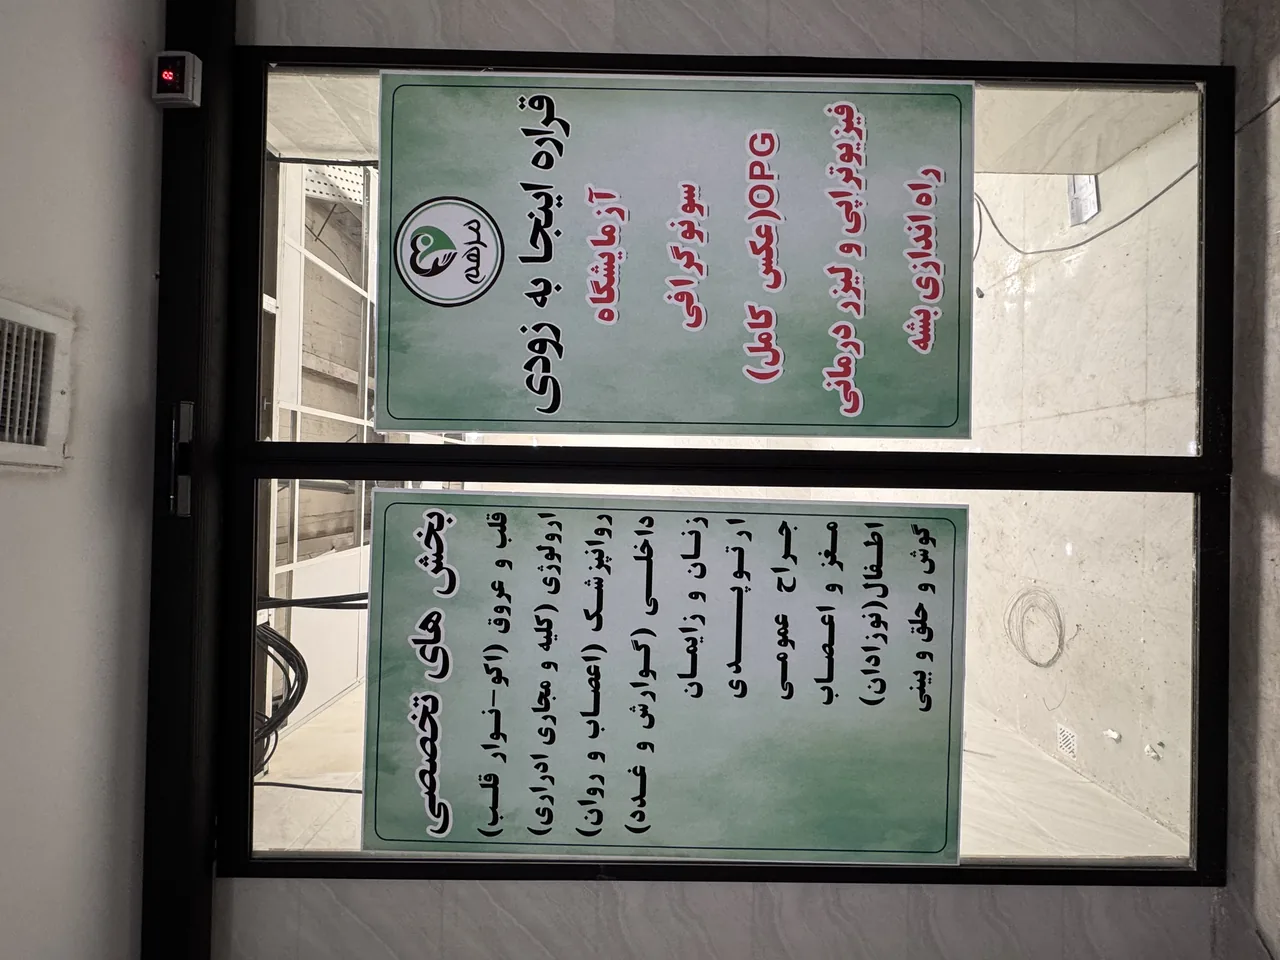 مرهم
قراره اینجا به زودی
آزمایشگاه
سونوگرافی
OPG(عکس کامل)
فیزیوتراپی و لیزر درمانی
راه اندازی بشه
بخش های تخصصی
قلب و عروق (اکو-نوار قلب)
ارولوژی (کلیه و مجاری ادراری)
روانپزشک (اعصاب و روان)
داخلی (گوارش و غدد)
زنان و زایمان
ارتوپدی
جراح عمومی
مغز و اعصاب
اطفال(نوزادان)
گوش و حلق و بینی